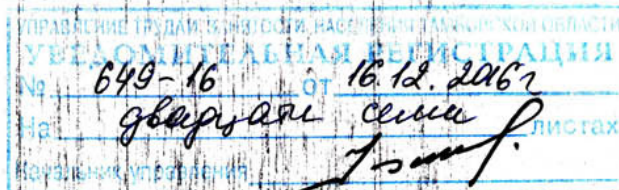 УПРАВЛЕНИЕ ТРУДА И ЗАНЯТОСТИ НАСЕЛЕНИЯ ТАМБОВСКОЙ ОБЛАСТИ
УВЕДОМИТЕЛЬНАЯ РЕГИСТРАЦИЯ
№ 649-16 от 16.12.2016г
На двадцати семи листах
Начальник управления